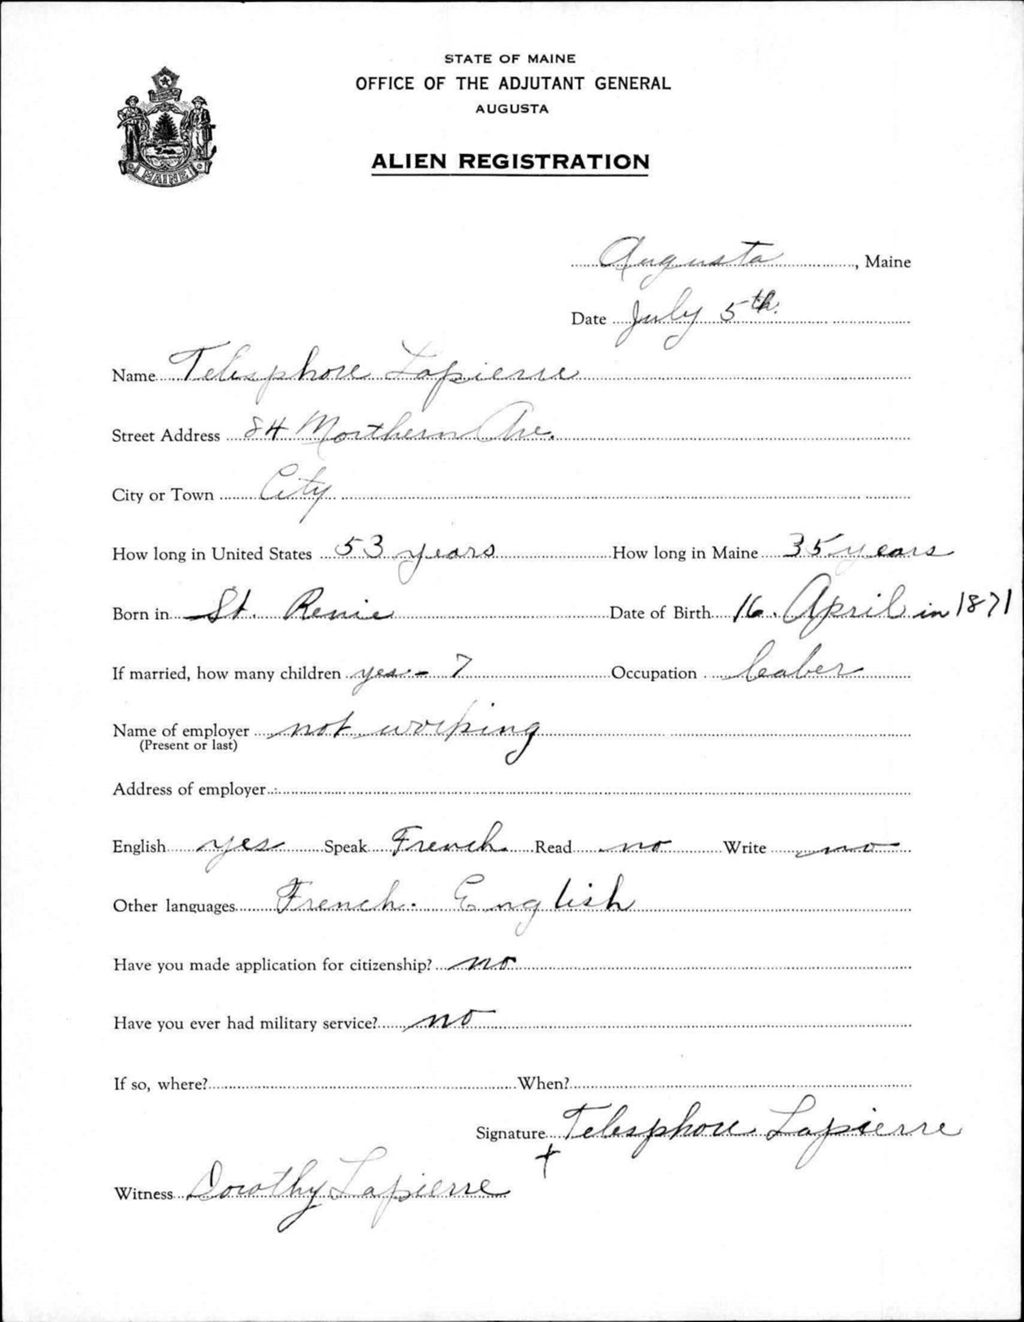 STATE OF MAINE
OFFICE OF THE ADJUTANT GENERAL
AUGUSTA
ALIEN REGISTRATION
MAINE
Augusta, Maine
Date July 5th.
Name Telesphore Lapierre
Street Address 84 Northern Ave.
City or Town City
How long in United States 53 years How long in Maine 35 years
Born in St. Renie Date of Birth 16. April in 1871
If married, how many children yes - 7 Occupation Laber
Name of employer not working
(Present or last)
Address of employer
English yes Speak French Read no Write no
Other languages French. English
Have you made application for citizenship? no
Have you ever had military service? no
If so, where? When?
Signature Telesphore Lapierre
+
Witness Dorothy Lapierre